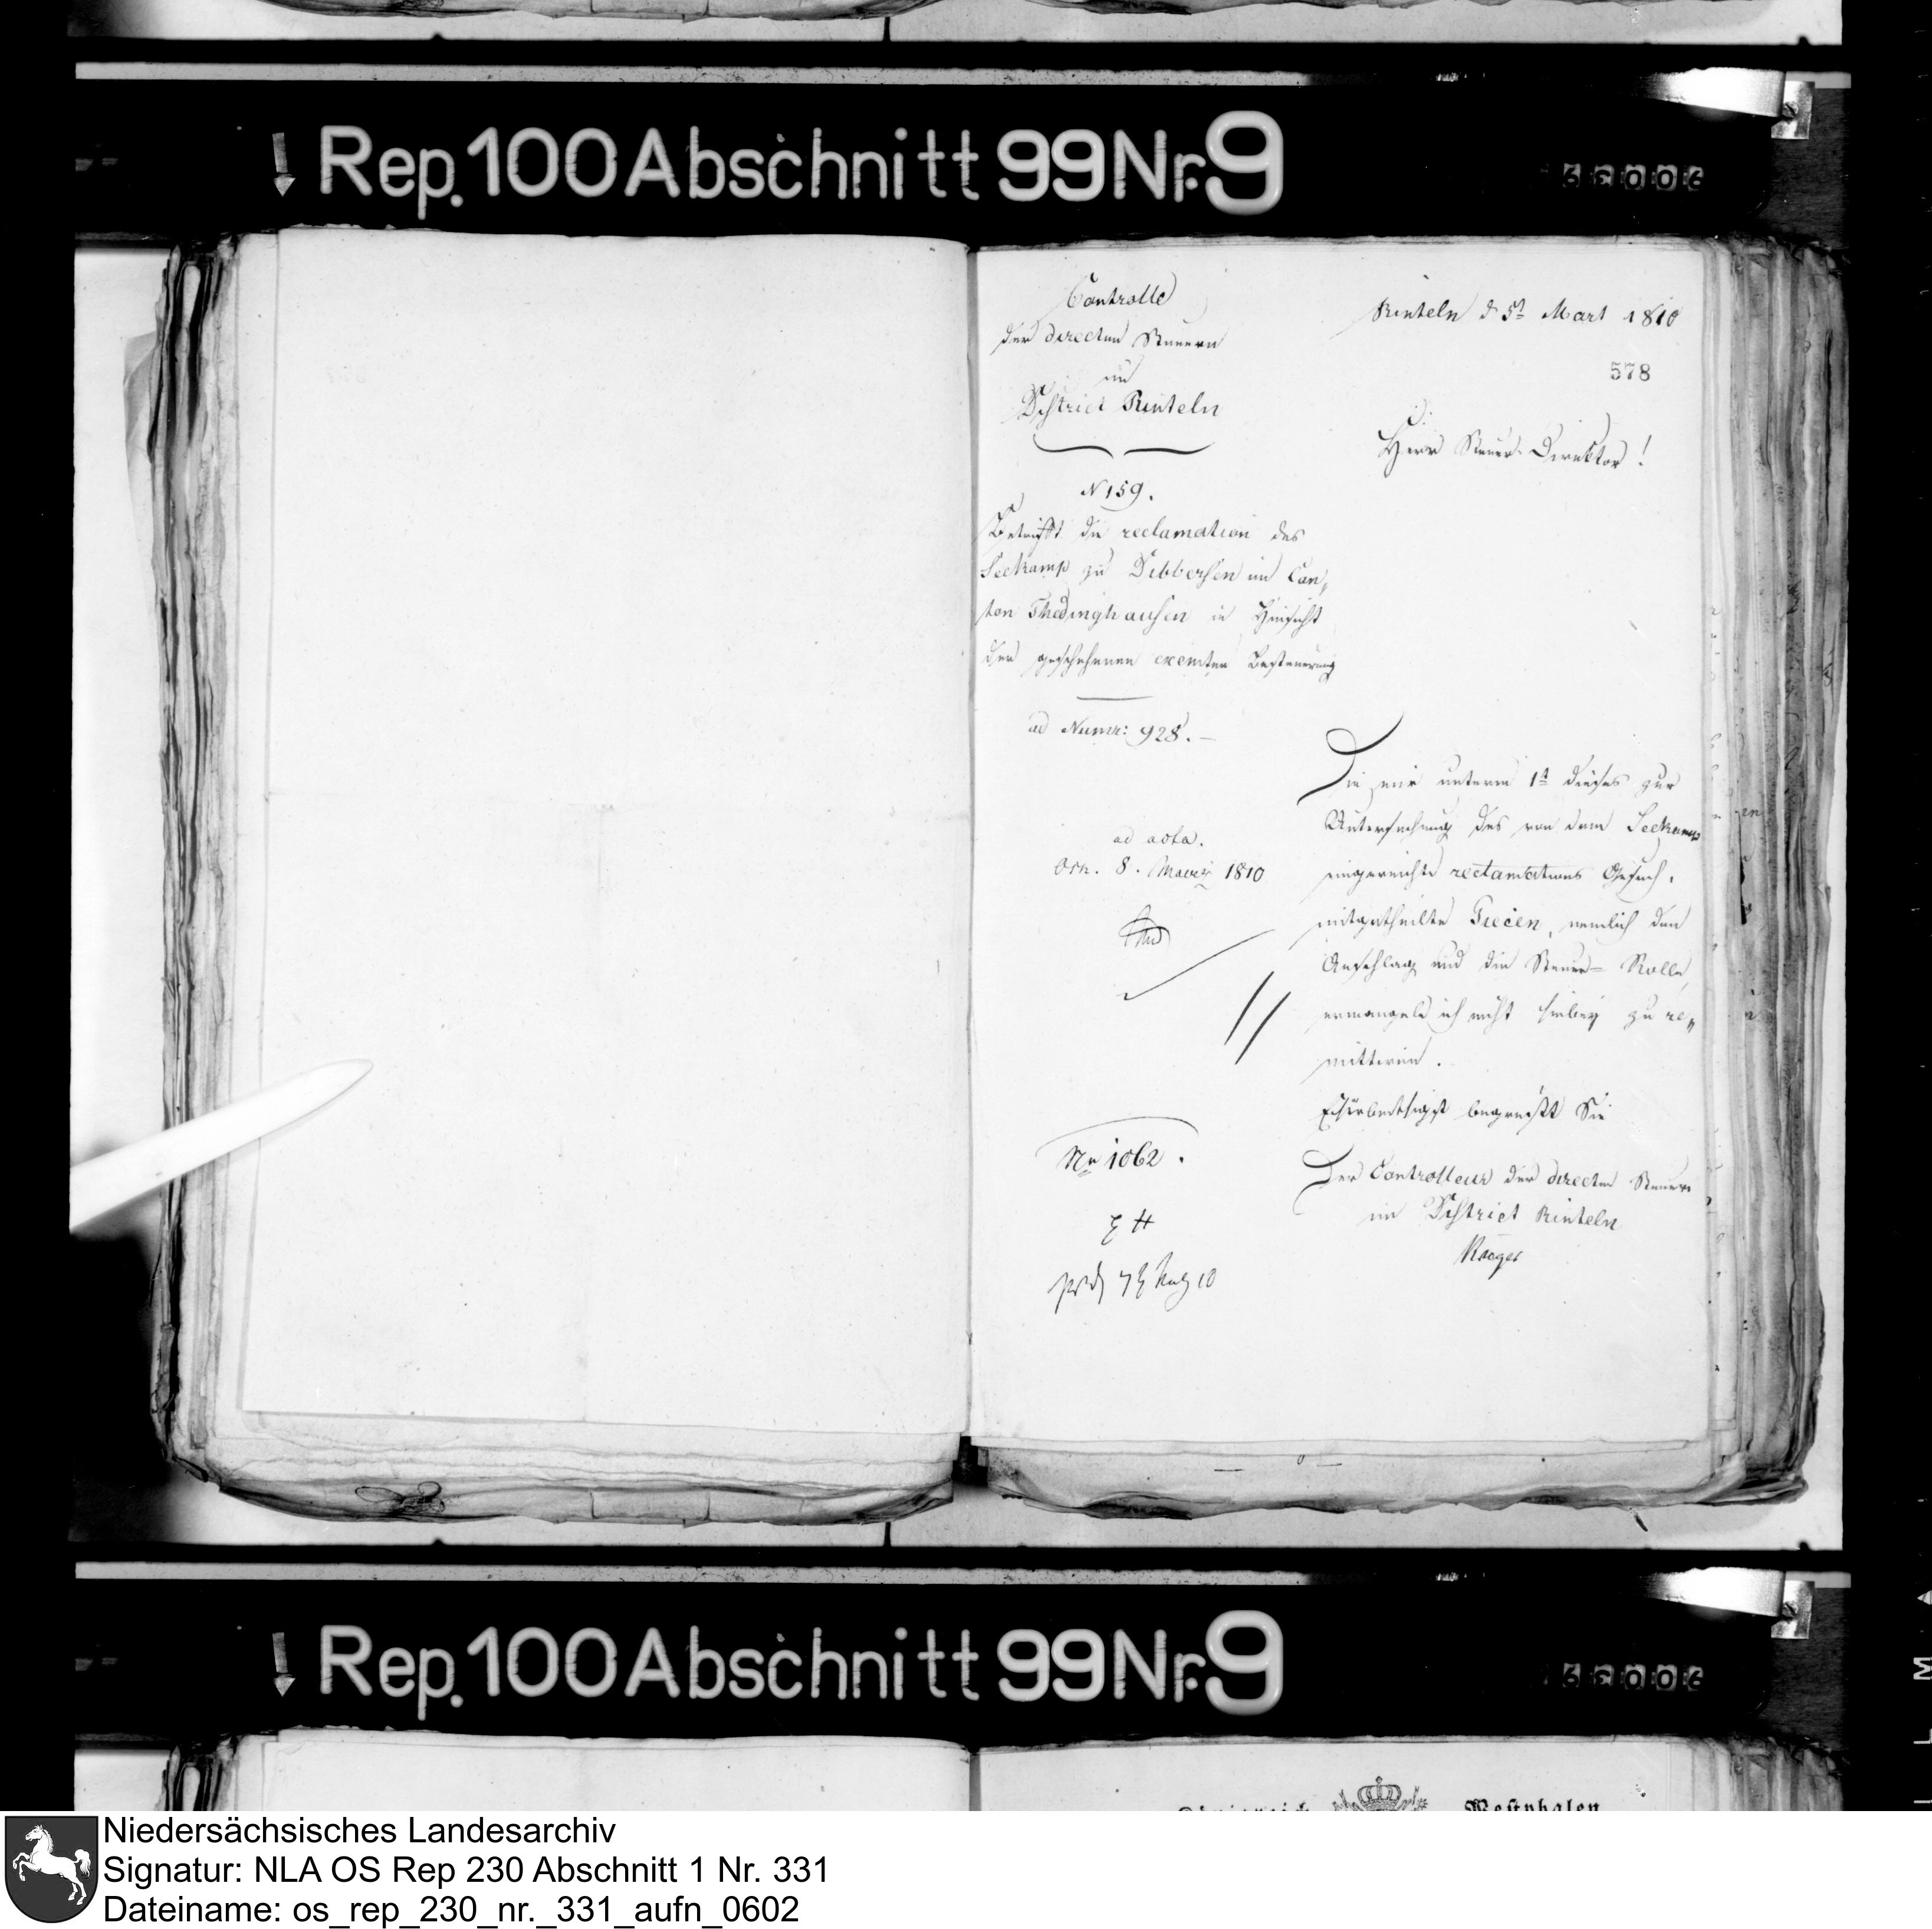 Rep. 100 Abschnitt 99 Nr. 9
Controlle
der directen Steuern
im
District Rinteln
Rinteln d 5t Mart 1810
578
Herr Steuer-Direktor!
N 159.
Betrifft die reclamation des
Seekamp zu Dibbersen im Can„
ton Thedinghausen in Hinsicht
der geschehenen exemten Besteuerung
ad Numr: 928. —
ad acta.
Osn. 8. 1810
Die mir unterm 1t dieses zur
Untersuchung des von dem Seekamp
eingereichte reclamations Gesuch,
mitgetheilte Piecen, nemlich den
Anschlag und die Steuer= Rolle,
ermangele ich nicht hiebey zu re„
mittiren.
begrüßt Sie
Der Controlleur der directen Steuern
im District Rinteln
Nr 1062.
Rep. 100 Abschnitt 99 Nr. 9
Westphalen
Niedersächsisches Landesarchiv
Signatur: NLA OS Rep 230 Abschnitt 1 Nr. 331
Dateiname: os_rep_230_nr._331_aufn_0602